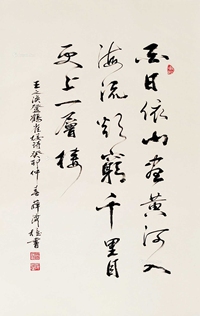 白日依山盡黃河入
海流欲窮千里目
更上一層樓
王之渙登鸛雀樓詩癸卯仲春薛濟書